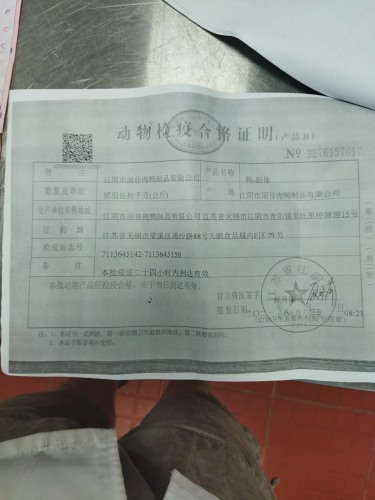 动物检疫合格证明(产品B)
№ 3276157017
货主 江阴市丽佳肉鸭制品有限公司 产品名称 鸭-胴体
数量及单位 贰佰伍拾千克(公斤) 产地 江阴市丽佳肉鸭制品有限公司
生产单位名称地址 江阴市丽佳肉鸭制品有限公司 江苏省无锡市江阴市青阳镇里旺里停塘路15号
目的地 江苏省无锡市梁溪区通沙路88号天鹏食品城内E区79号
检疫标志号 7113645142-7113645150
备注 本检疫证二十四小时内到达有效
本批动物产品经检疫合格，应于当日到达有效。
官方兽医签字
签发日期 08:21
注：1.本证书一式两联，第一联动物卫生监督所留存，第二联随货同行。
2.本证书限省境内使用。
第二联